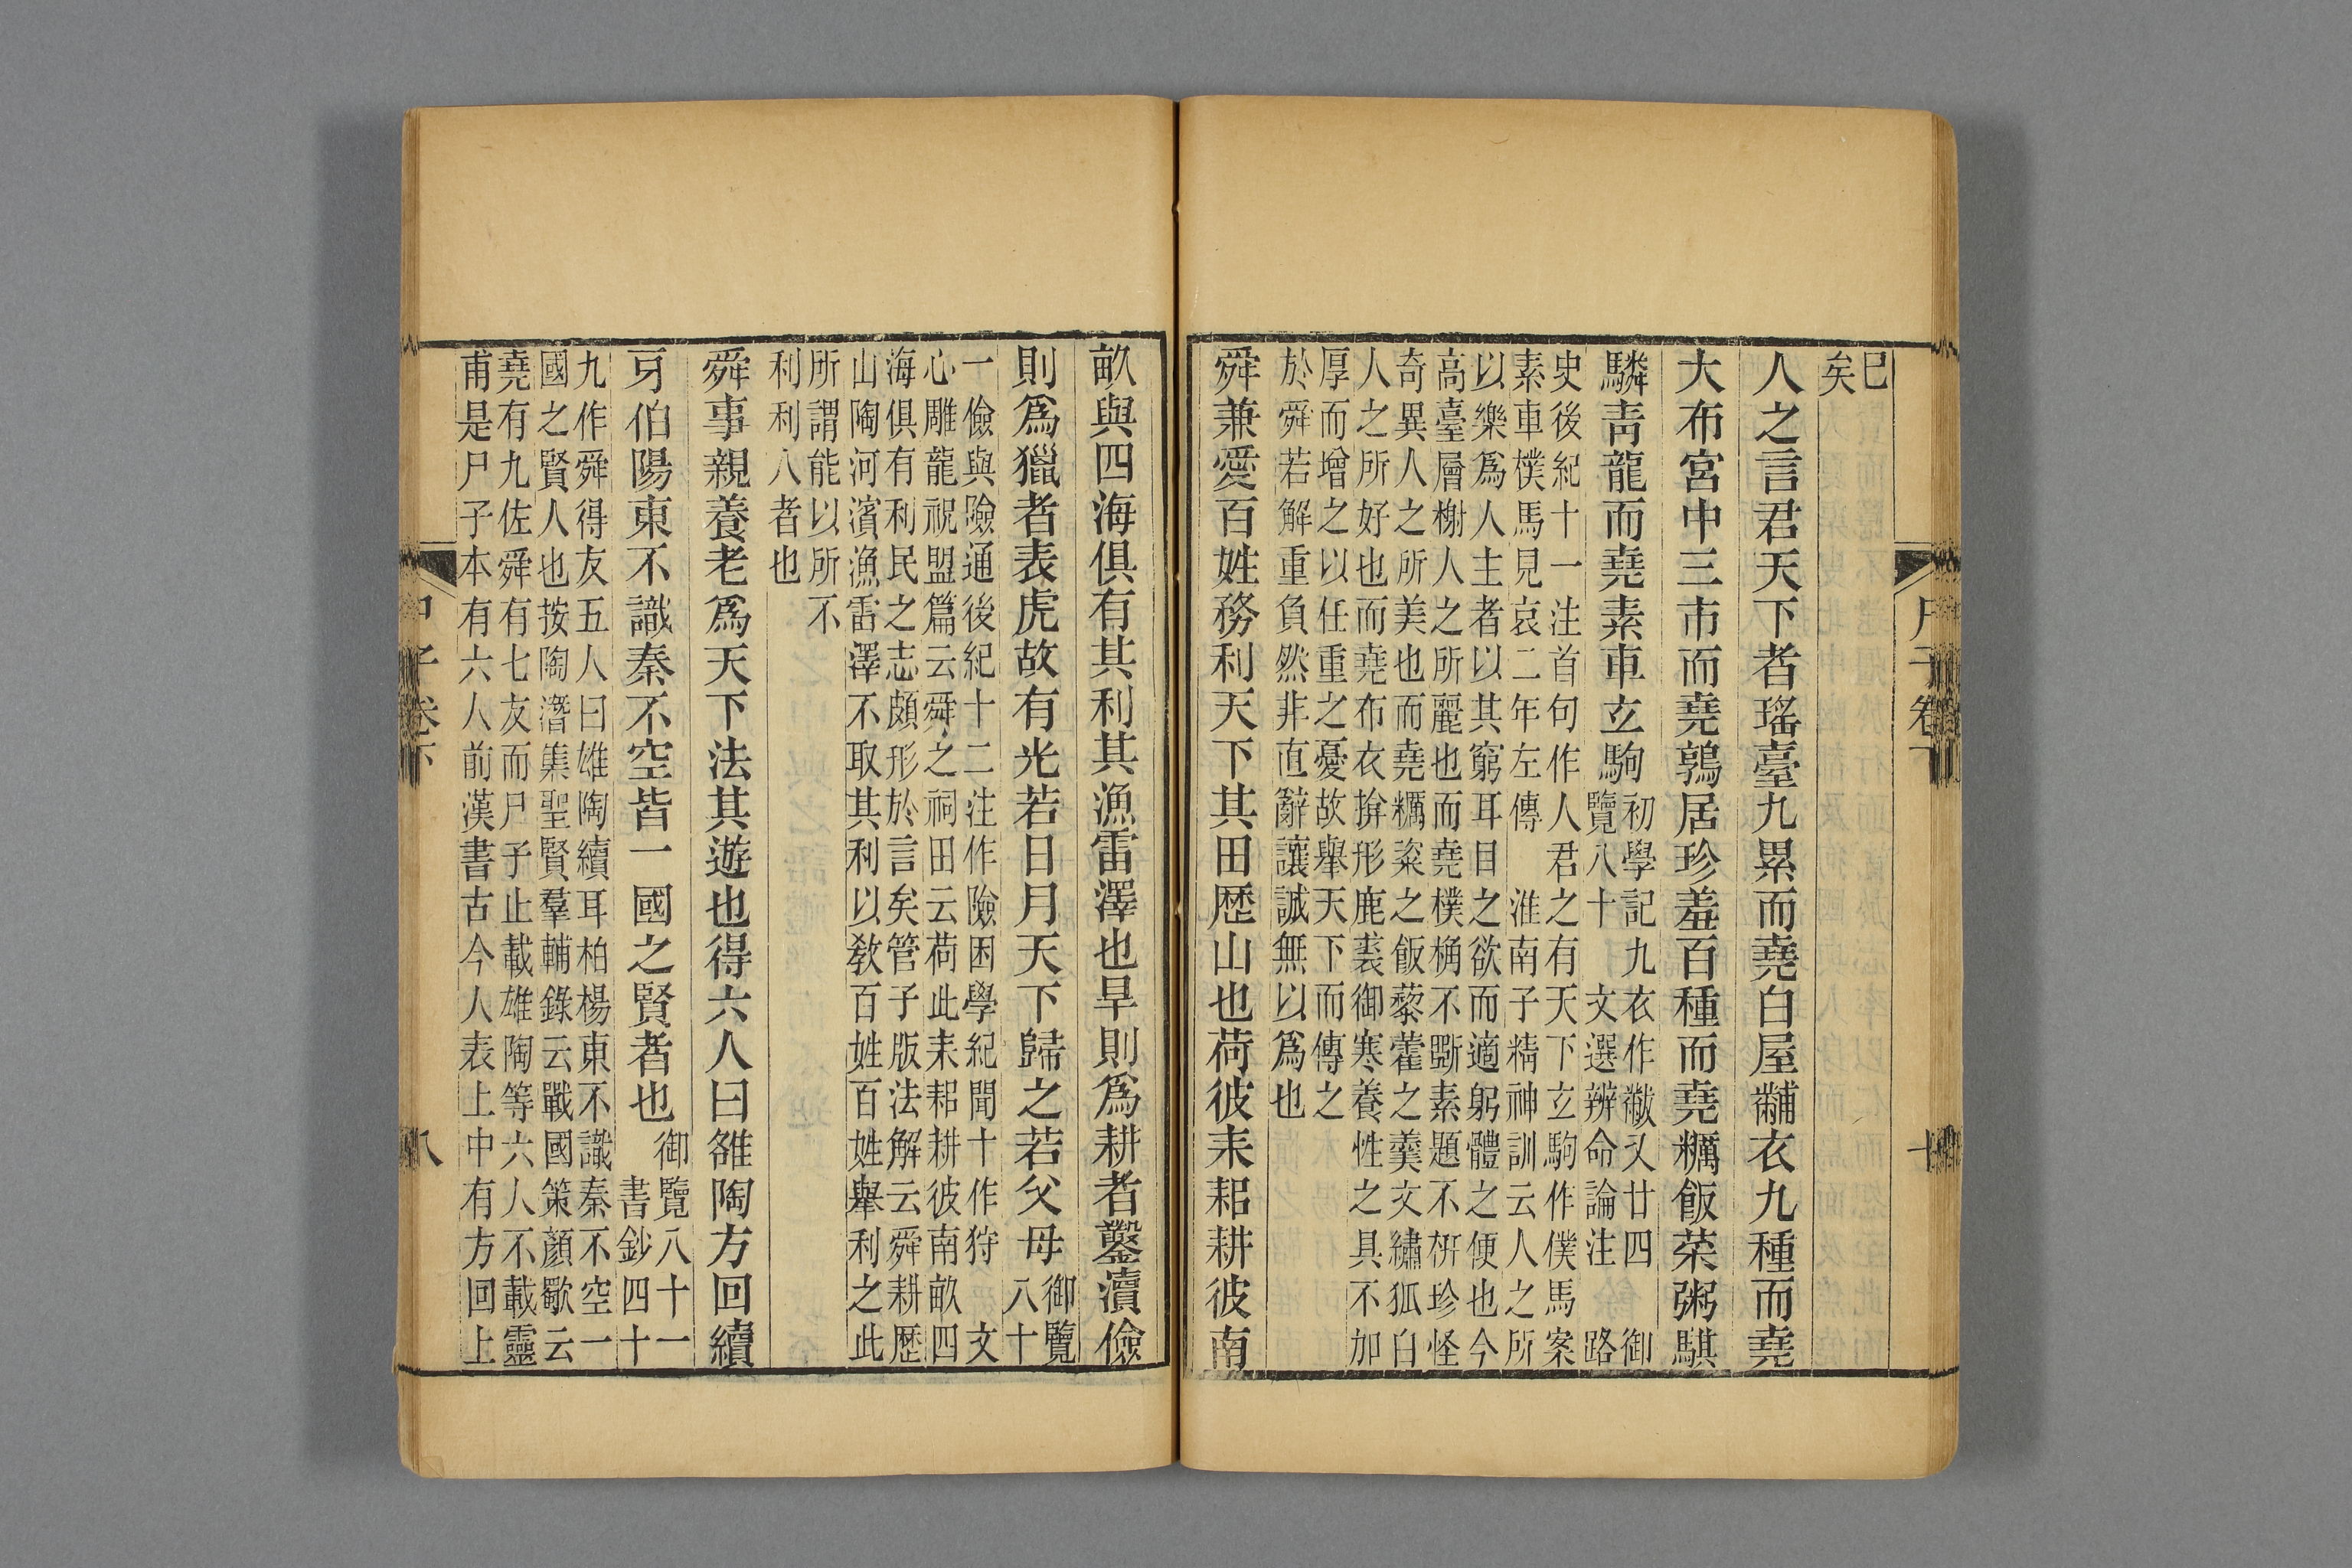 巳
矣
人之言君天下者瑤臺九累而堯白屋黼衣九種而堯
大布宮中三市而堯鶉居珍羞百種而堯糲飯菜粥騏
驎青龍而堯素車立駒
初學記九衣作黻又廿四 御
覽八十 文選辨命論注 路
史後紀十一注首句作人君之有天下立駒作僕馬案
素車樸馬見哀二年左傳 淮南子精神訓云人之所
以樂爲人主者以其窮耳目之欲而適躬體之便也今
高臺層榭人之所麗也而堯樸桷不斲素題不枅珍怪
奇異人之所美也而堯糲粢之飯藜藿之羹文繡狐白
人之所好也而堯布衣揜形鹿裘御寒養性之具不加
厚而增之以任重之憂故舉天下而傳之
於舜若解重負然非直辭讓誠無以爲也
舜兼愛百姓務利天下其田歷山也荷彼耒耜耕彼南
尸子卷下
十
畝與四海俱有其利其漁雷澤也旱則爲耕者鑿瀆儉
則爲獵者表虎故有光若日月天下歸之若父母
御覽
八十
一儉與險通後紀十二注作險困學紀聞十作狩 文
心雕龍祝盟篇云舜之祠田云荷此耒耜耕彼南畝四
海俱有利民之志頗形於言矣管子版法解云舜耕歷
山陶河濱漁雷澤不取其利以教百姓百姓舉利之此
所謂能以所不
利利人者也
舜事親養老爲天下法其遊也得六人曰雒陶方回續
牙伯陽東不識秦不空皆一國之賢者也
御覽八十一
書鈔四十
九作舜得友五人曰雄陶續耳柏楊東不識秦不空一
國之賢人也按陶潛集聖賢羣輔錄云戰國策顏歜云
堯有九佐舜有七友而尸子止載雄陶等六人不載靈
甫是尸子本有六人前漢書古今人表上中有方回上
子卷下